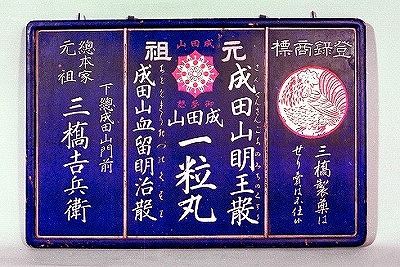 登録商標
三橋製薬は
せり賣は不仕候
元祖
成田山明王散
成田山
御夢想
成田山
一粒丸
成田山血留明治散
總本家
元祖
下總成田山門前
三橋吉兵衛